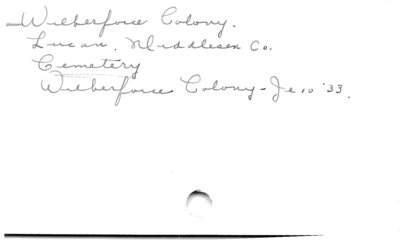 Wilberforce Colony.
Lucan, Middlesex Co.
Cemetery
Wilberforce Colony - Je 10 '33.